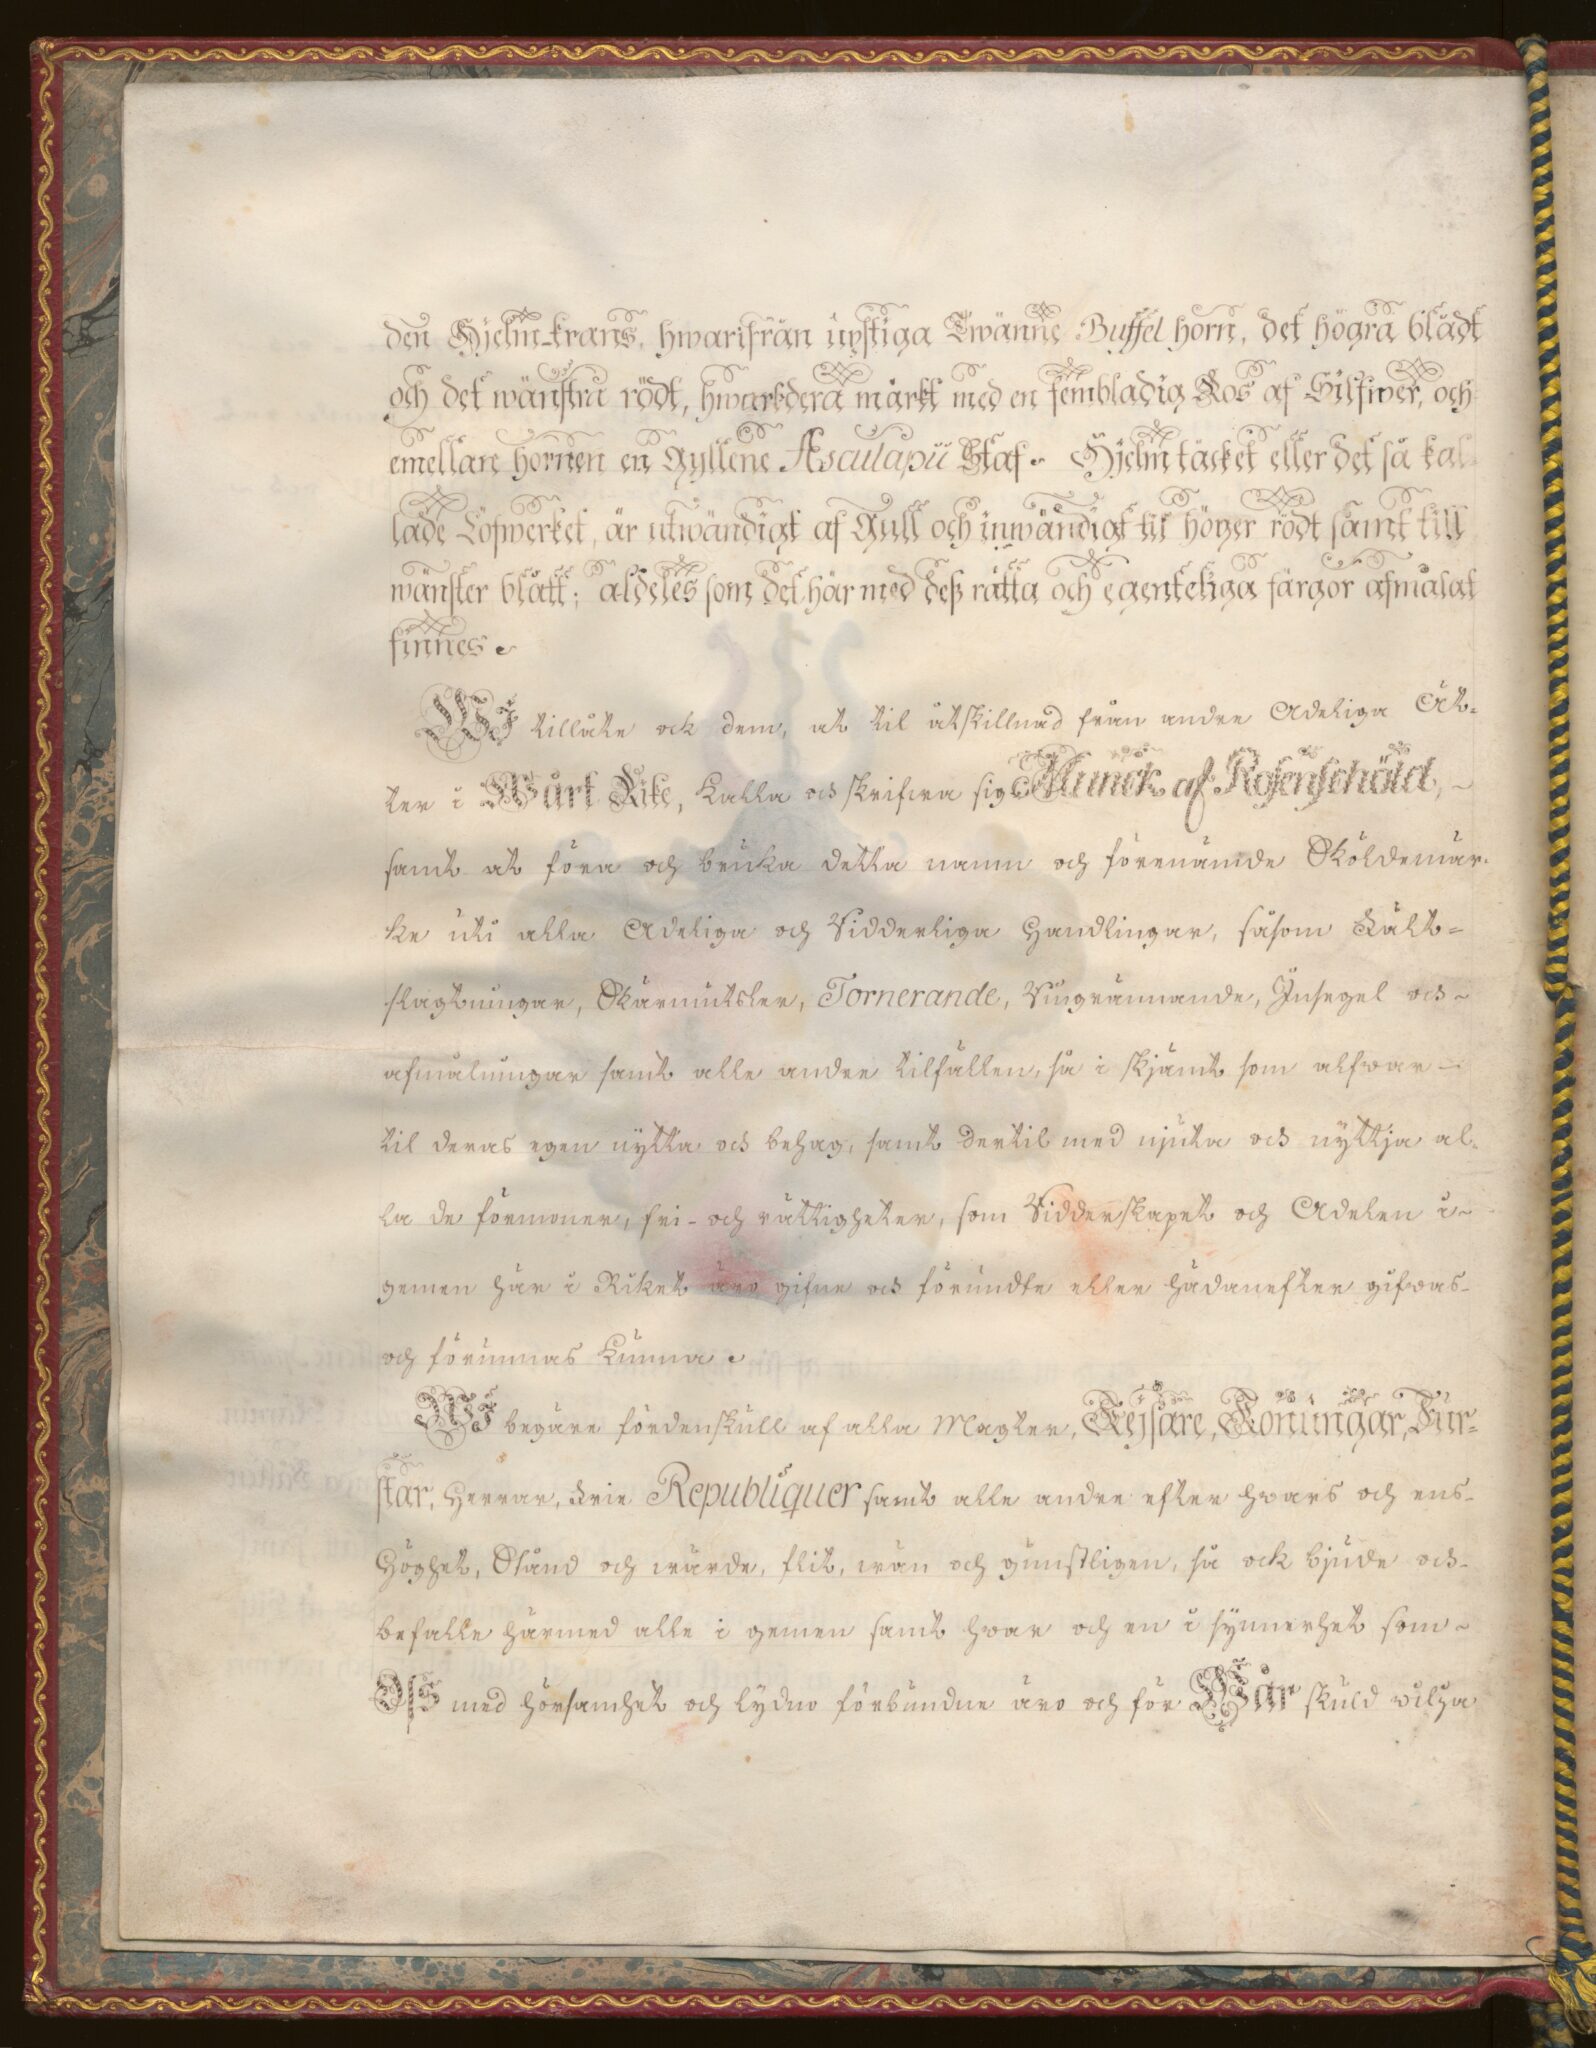 den Hjelm-krans, hwarifrån upstiga Twänne Buffel horn, det högra blådt
och det wänstra rödt, hwarkdera märkt med en fembladig Ros af Silfwer, och
emellan hornen en Gyllene Æsculapii Staf. Hjelm täcket eller det så kal-
lade Löfwerket, är utwändigt af Gull och inwändigt til höger rödt samt till
wänster blått; aldeles som det här med deß rätta och egenteliga färgor afmålat
finnes.
WI tillåte ock dem, at til åtskillnad från andre Adeliga Ät-
ter i Wårt Rike, kalla och skrifwa sig Munck af Rosenschöld, ~
samt at föra och bruka detta namn och förenämde Sköldemär-
ke uti alla Adeliga och Ridderliga Handlingar, såsom Fält-
slagtningar, Skärmützler, Tornerande, Ringrännande, Insegel och ~
afmålningar samt alle andre tilfällen, så i skjämt som alfwar -
til deras egen nytta och behag, samt dertil med njuta och nyttja al-
la de förmoner, fri- och rättigheter, som Ridderskapet och Adelen i ~
gemen här i Riket äro gifne och förundte eller hädanefter gifwas
och förunnas kunna.
WI begäre fördenskull af alla Magter, Kejsare, Konungar, Fur-
star, Herrar, Frie Republiquer samt alle andre efter hwars och ens
Höghet, Stånd och wärde, flit, wän och gunstligen, så ock bjude och
befalle härmed alle i gemen samt hwar och en i synnerhet som ~
Oss med hörsamhet och lydno förbundne äro och för Wår skuld wilja